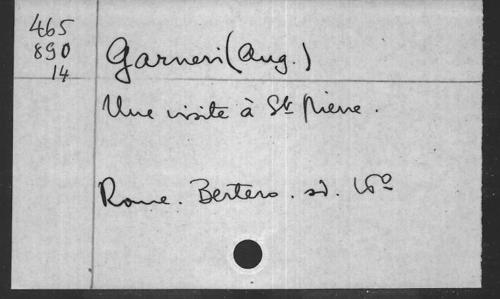 465
890
14
Garneri (Aug.)
Une visite à St Pierre.
Rome. Bertero. sd. 16º